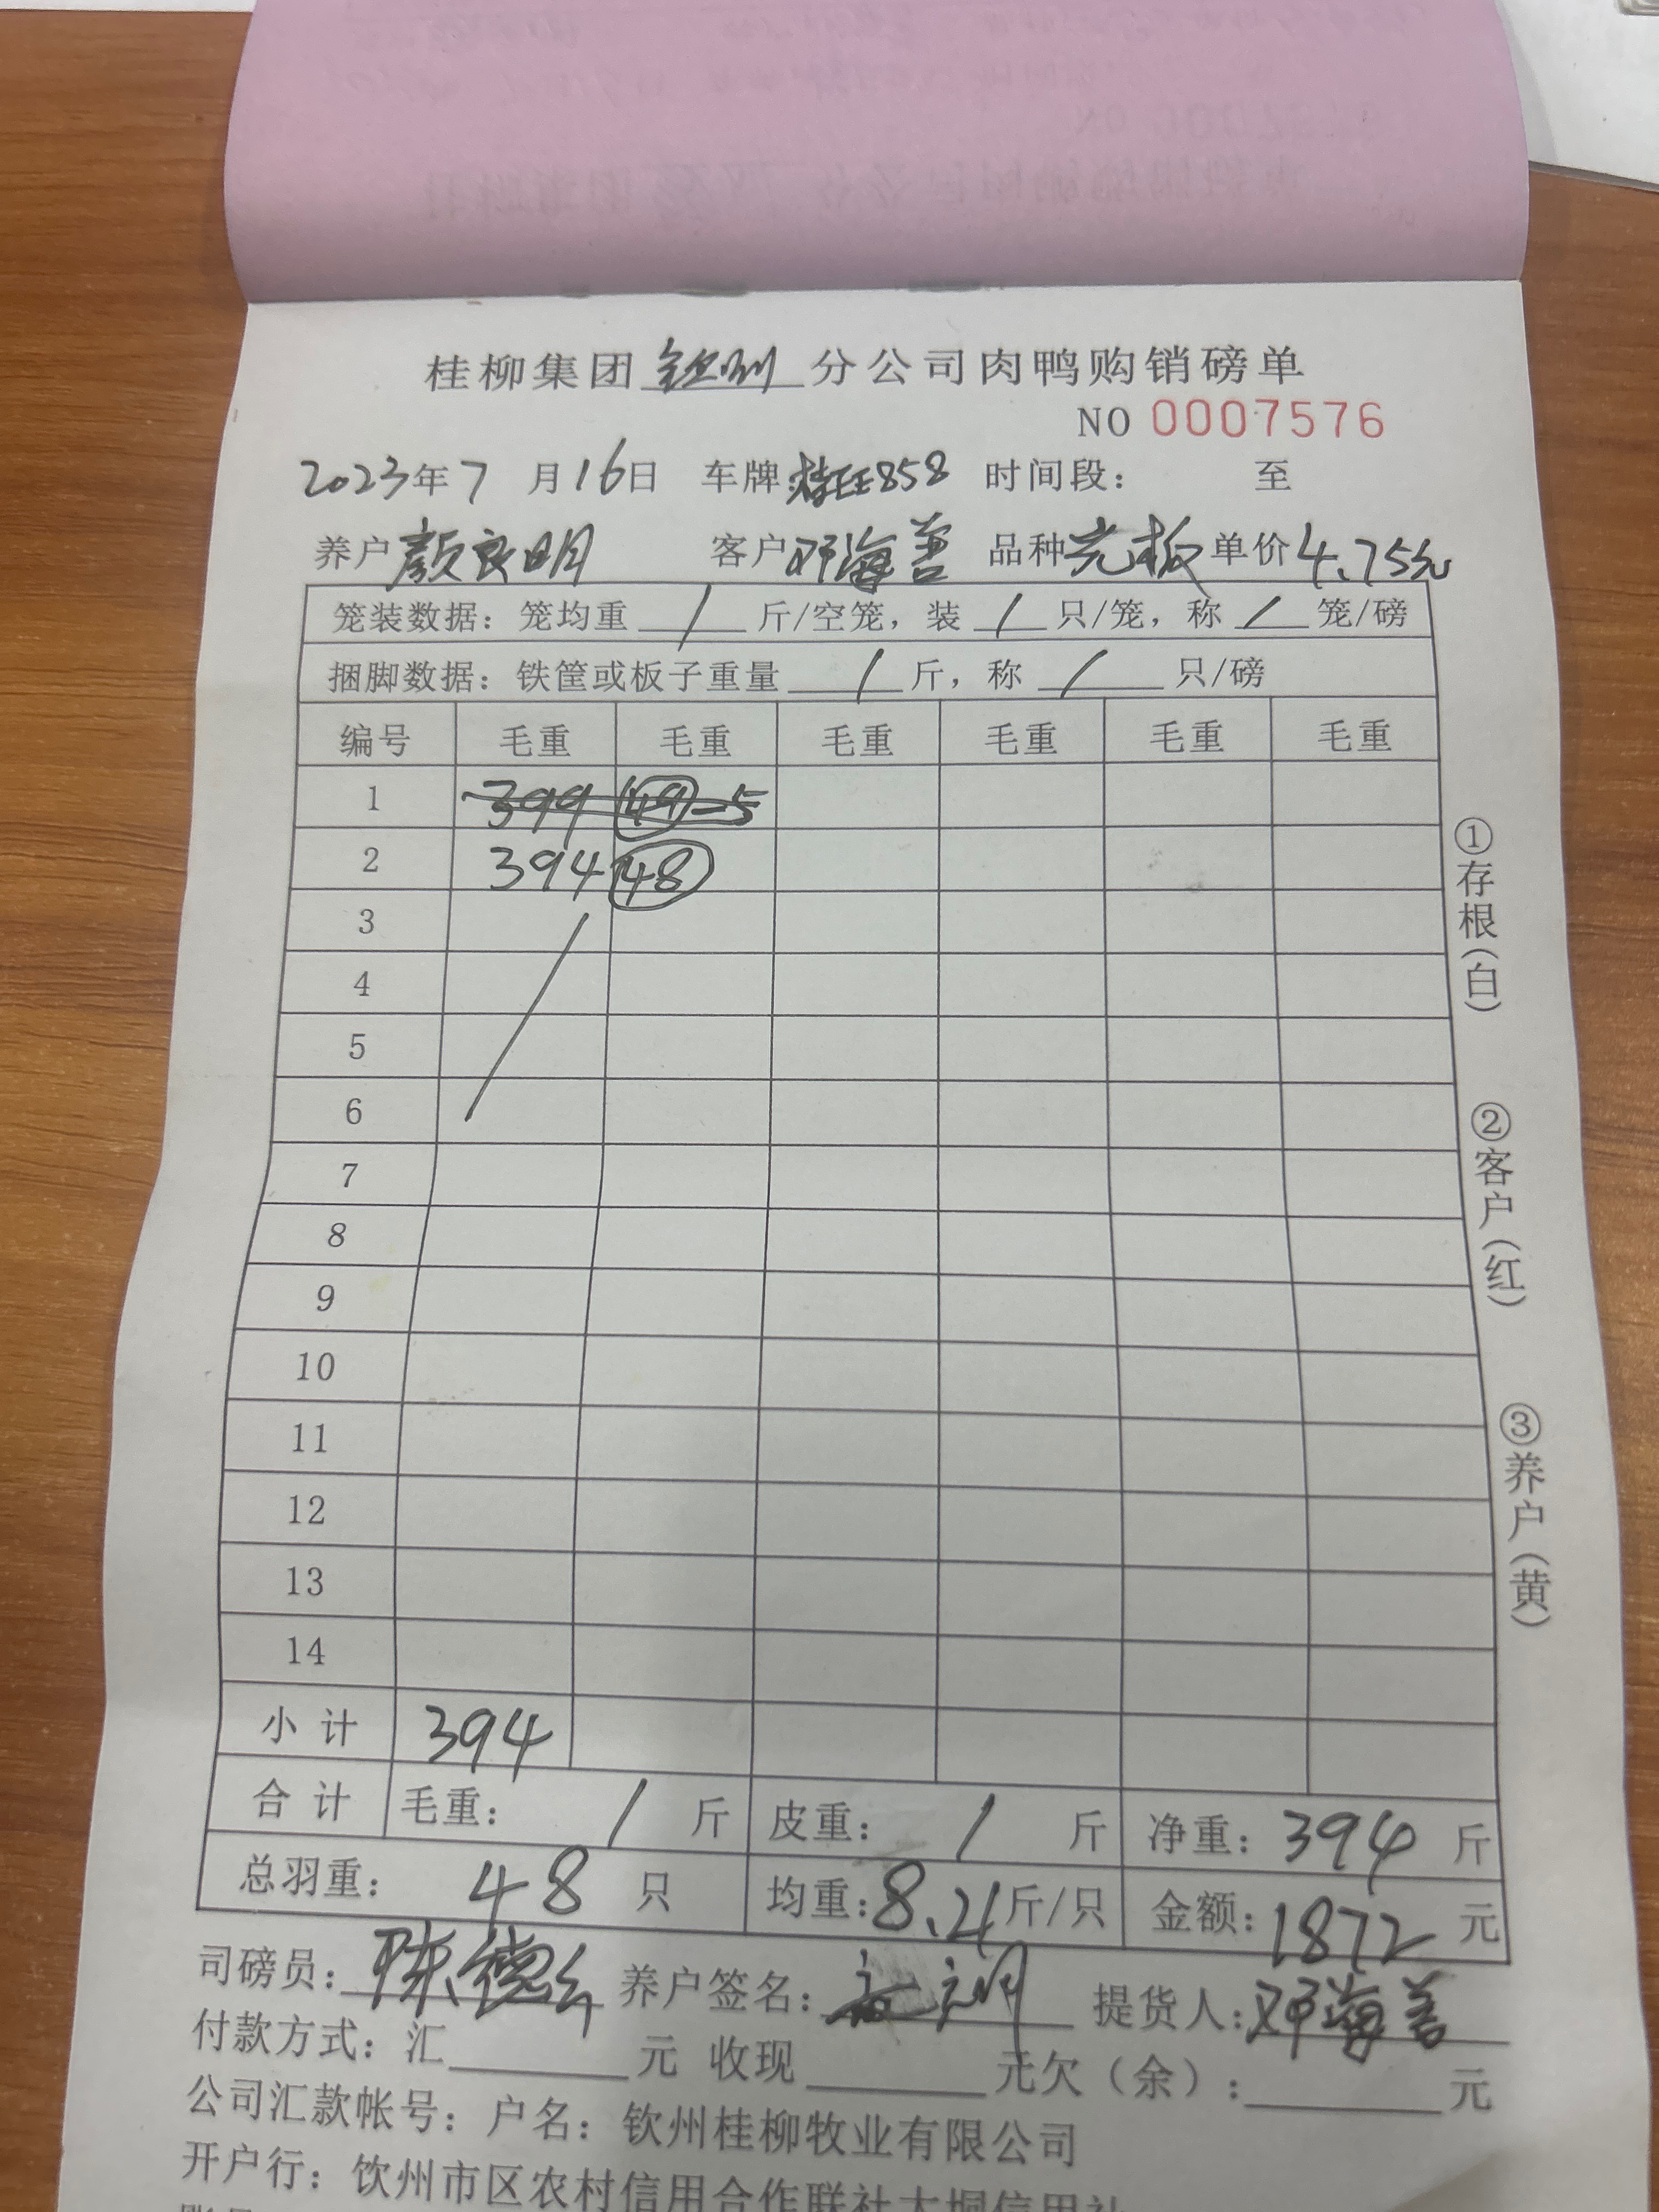 桂柳集团钦州分公司肉鸭购销磅单
NO 0007576
2023年7月16日 车牌:桂EE858 时间段: 至
养户颜良明 客户邓海善 品种光板 单价4.75元
笼装数据: 笼均重 / 斤/空笼, 装 / 只/笼, 称 / 笼/磅
捆脚数据: 铁筐或板子重量 / 斤, 称 / 只/磅
编号 毛重 毛重 毛重 毛重 毛重 毛重
1 399 49-5
2 394 48
3
4
5
6
7
8
9
10
11
12
13
14
小计 394
合计 毛重: / 斤 皮重: / 斤 净重: 394 斤
总羽重: 48 只 均重: 8.21斤/只 金额: 1872 元
司磅员: 陈德 养户签名: 提货人: 邓海善
付款方式: 汇 元 收现 元欠(余): 元
公司汇款帐号: 户名: 钦州桂柳牧业有限公司
开户行: 钦州市区农村信用合作联社大垌信用社
①存根(白)
②客户(红)
③养户(黄)